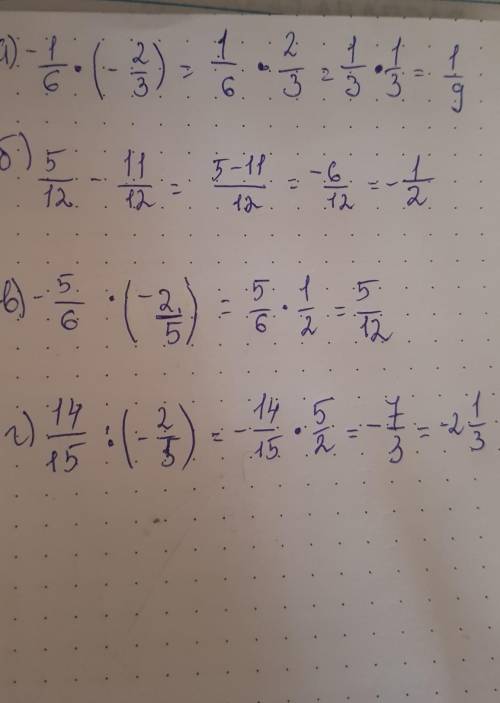 а) -1/6 · (-2/3) = 1/6 · 2/3 = 1/3 · 1/3 = 1/9
б) 5/12 - 11/12 = 5-11/12 = -6/12 = -1/2
в) -5/6 · (-2/5) = 5/6 · 1/2 = 5/12
г) 14/15 : (-2/5) = -14/15 · 5/2 = -7/3 = -2 1/3